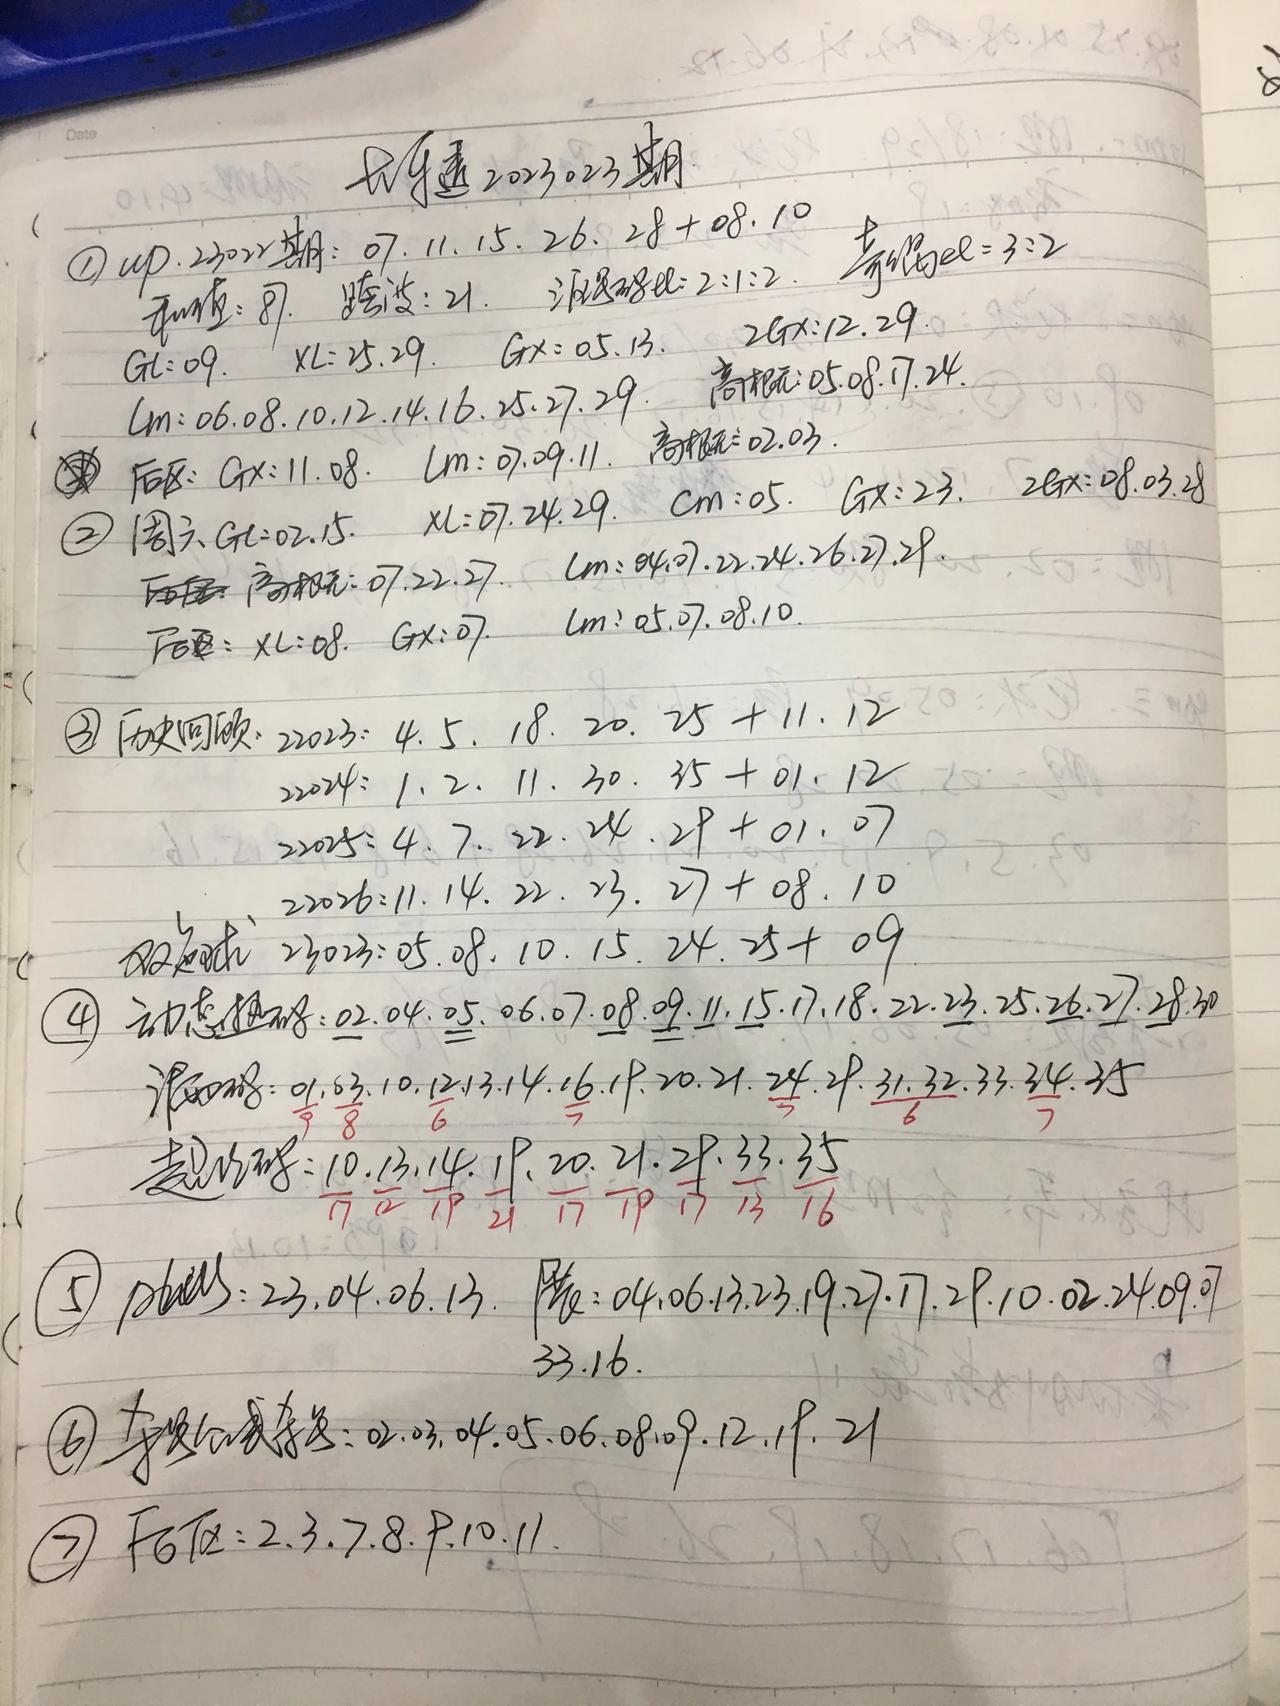 Date
大乐透2023023期
① up.23022期: 07.11.15.26.28+08.10
和值:87. 跨度:21. 沿邻码比:2:1:2. 奇偶比=3:2
GL:09. XL:25.29. GX:05.13. 2GX:12.29.
Lm:06.08.10.12.14.16.25.27.29. 高概元:05.08.17.24.
后区: GX:11.08. Lm:07.09.11. 高概元:02.03.
② 周六、GL:02.15. XL:07.24.29. Cm:05. GX:23. 2GX:08.03.28
高概元:07.22.27. Lm:04.07.22.24.26.27.29.
后区: XL:08. GX:07. Lm:05.07.08.10.
③ 历史回顾: 22023: 4.5.18.20.25+11.12
22024: 1.2.11.30.35+01.12
22025: 4.7.22.24.29+01.07
22026: 11.14.22.23.27+08.10
双色球、23023:05.08.10.15.24.25+09
④ 动态热码:02.04.05.06.07.08.09.11.15.17.18.22.23.25.26.27.28.30
01.03.10.12.13.14.16.19.20.21.24.29.31.32.33.34.35
9 8 6 7 7 6 7
超冷码:10.13.14.19.20.21.29.33.35
17 12 19 21 17 19 17 13 16
⑤ 23.04.06.13. 04.06.13.23.19.27.17.29.10.02.24.09.07
33.16.
⑥ 02.03.04.05.06.08.09.12.19.21
⑦ 后区:2.3.7.8.9.10.11.